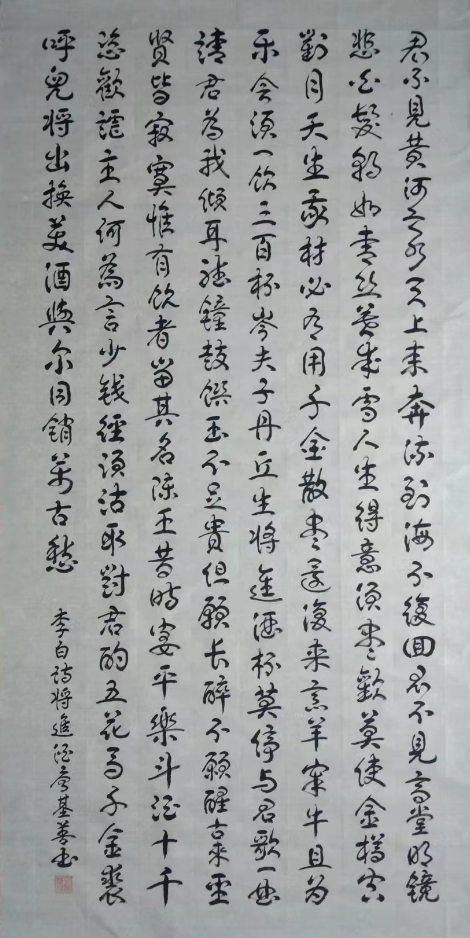 君不見黄河之水天上来奔流到海不復回君不見高堂明鏡
悲白髮朝如青丝暮成雪人生得意须尽歡莫使金樽空
對月天生我材必有用千金散尽還復来烹羊宰牛且为
乐会须一饮三百杯岑夫子丹丘生将進酒杯莫停与君歌一曲
請君為我倾耳聽鐘鼓饌玉不足貴但願长醉不願醒古来圣
贤皆寂寞惟有飲者留其名陈王昔時宴平樂斗酒十千
恣歡謔主人何為言少钱徑须沽取對君酌五花马千金裘
呼兒将出换美酒與尔同銷萬古愁
李白詩将進酒基善书